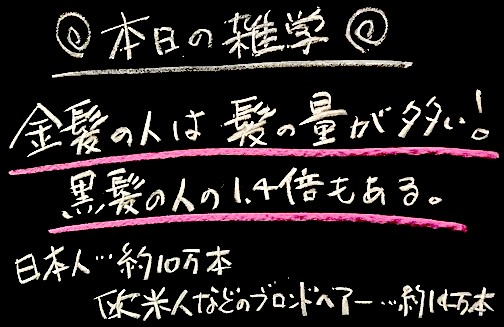 本日の雑学
金髪の人は髪の量が多い!
黒髪の人の1.4倍もある。
日本人…約10万本
欧米人などのブロンドヘアー…約14万本